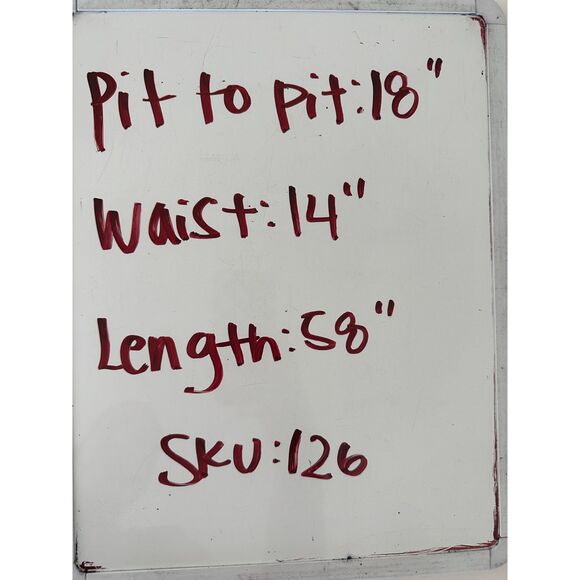 Pit to pit:18"
Waist:14"
Length:58"
SKU:126